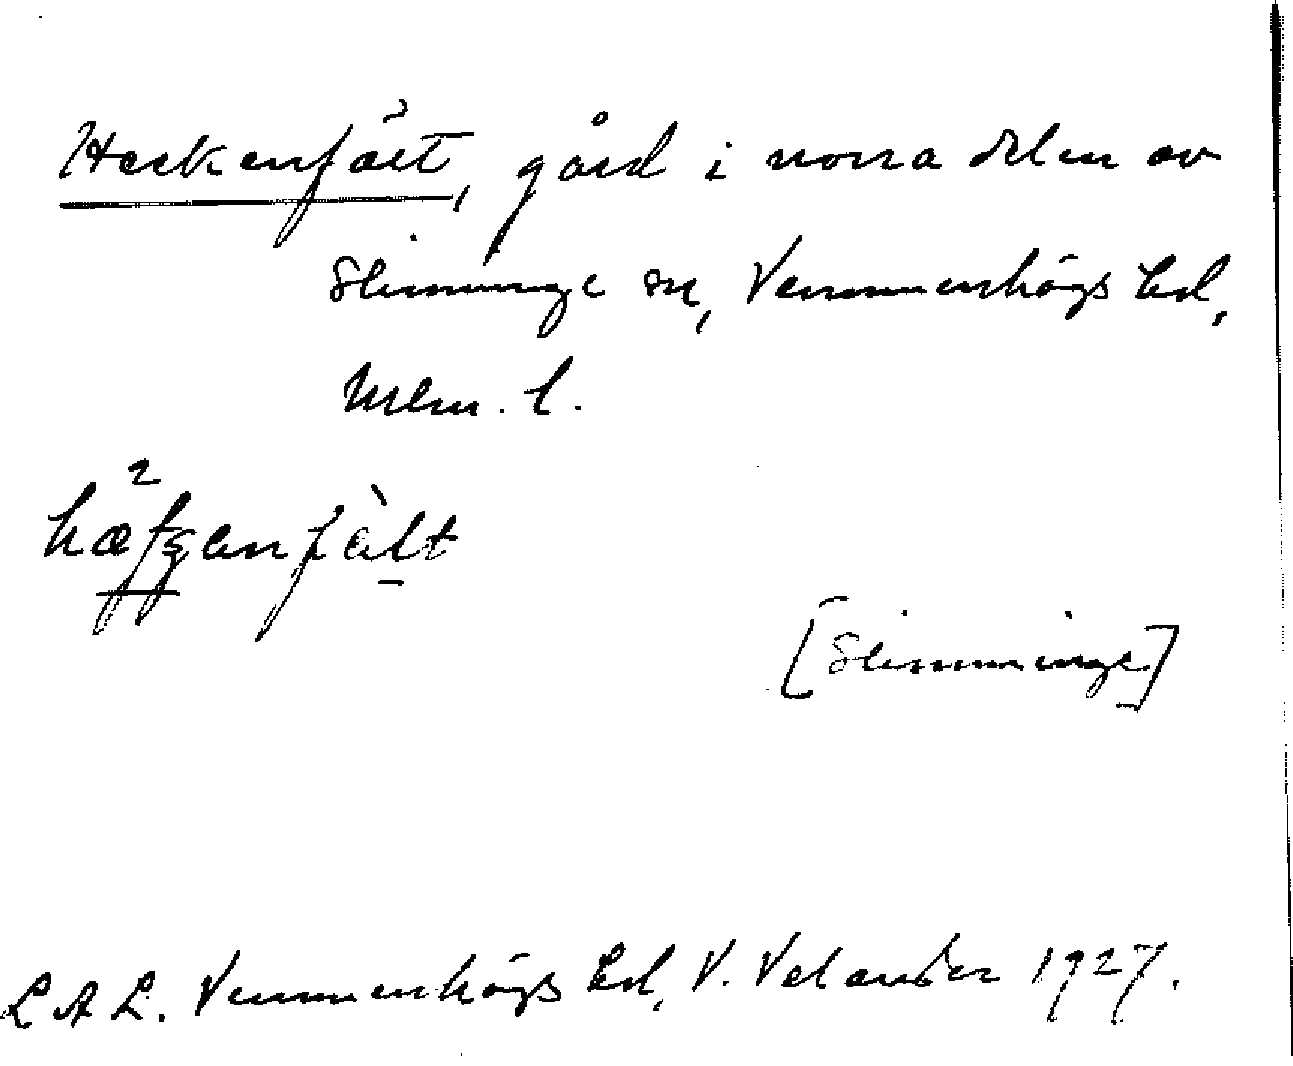 Heckenfält, gård i norra delen av
Slimminge sn, Vemmenhögs hd,
Mlm. l.
[Slimminge]
L A L. Vemmenhögs hd, V. Velander 1927.